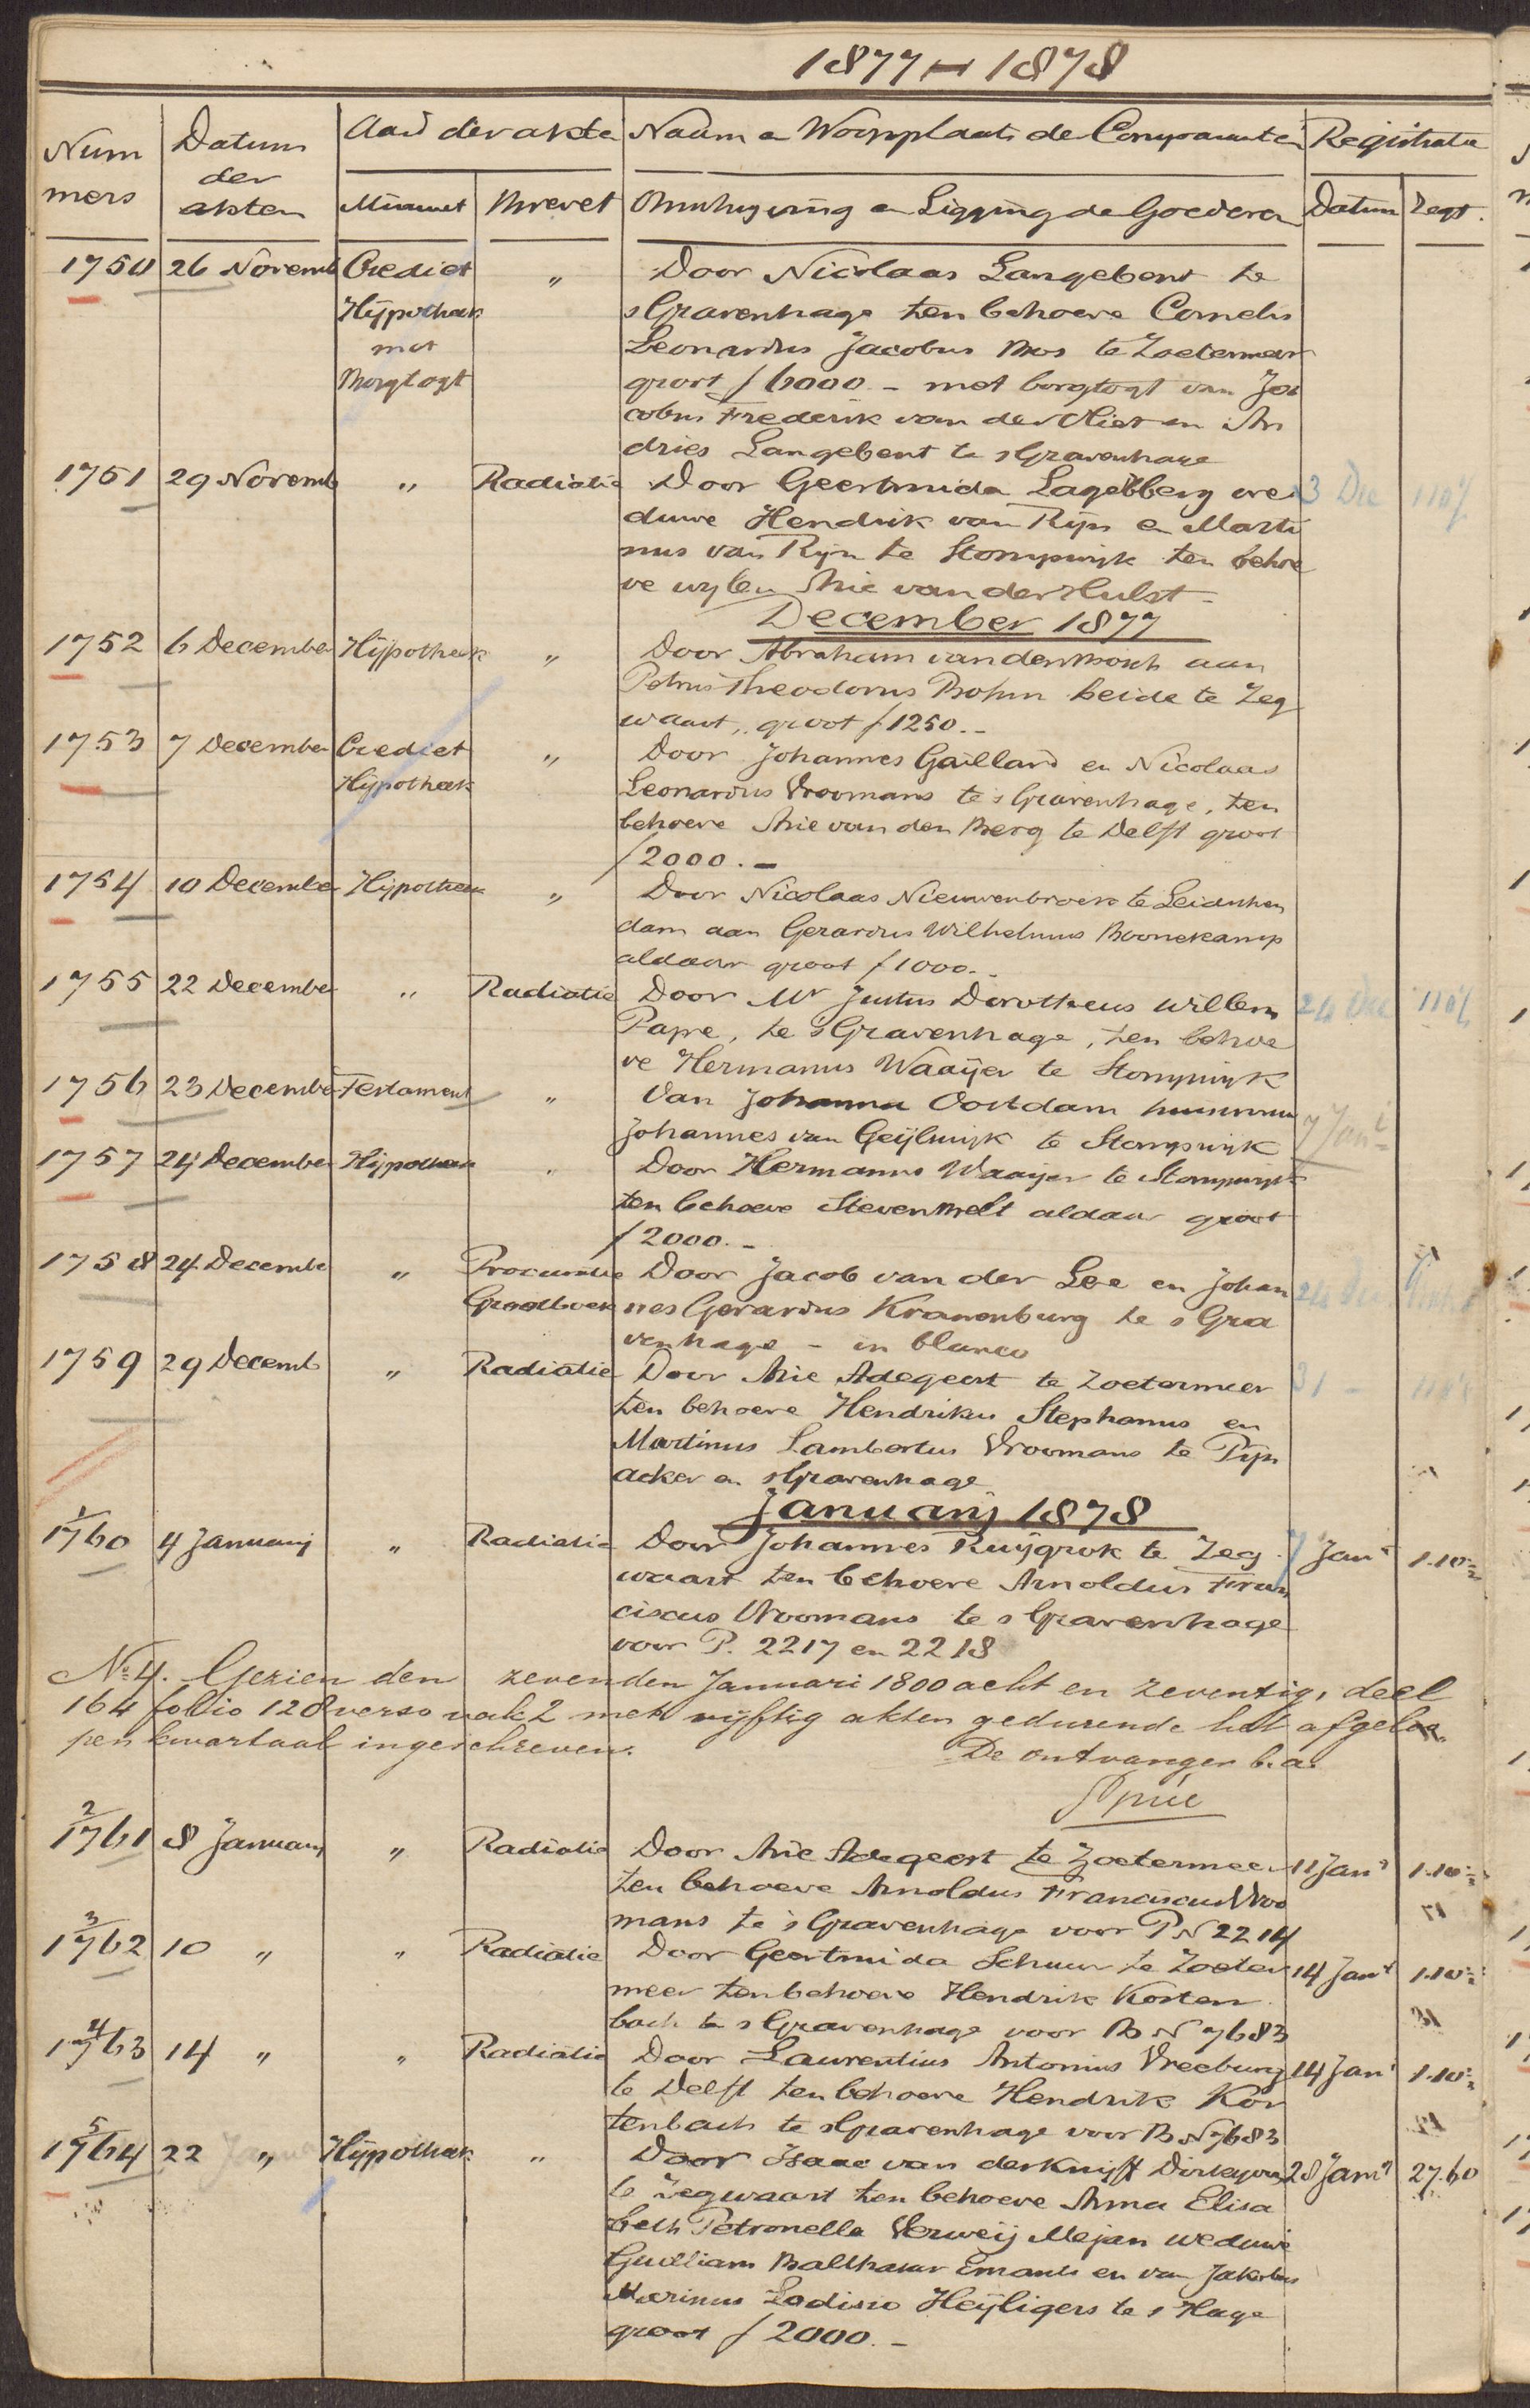 1877-1878
Num
mers
Datum
der
akten
Aard der akte
Minuut
Brevet
Naam en Woonplaats der Comparanten
Omschrijving en Ligging der Goederen
Registratie
Datum
Regt.
1750 26 Novemb Crediet " Door Nicolaas Langebent te
Hypotheek s Gravenhage ten behoeve Cornelis
met Leonardus Jacobus Bos te Zoetermeer
Borgtogt groot f 6000 - met borgtogt van Ja
cobus Frederik van der Vliet en An
dries Langebent te s Gravenhage
1751 29 Novemb " Radiatie Door Geertruida Lagerberg we 3 Dec 110½
duwe Hendrik van Rijn en Marti
nus van Rijn te Stompwijk ten behoe
ve wylen Arie van der Hulst -
December 1877
1752 6 December Hypotheek " Door Abraham van den Bosch aan
Petrus Theodorus Bohm beide te Zeg
waart, groot f 1250.-
1753 7 December Crediet " Door Johannes Gaillard en Nicolaas
Hypotheek Leonardus Vroomans te s Gravenhage, ten
behoeve Arie van den Berg te Delft groot
f 2000.-
1754 10 December Hypotheek " Door Nicolaas Nieuwenbroek te Leidschen
dam aan Gerardus Wilhelmus Boonekamp
aldaar groot f 1000.-
1755 22 December " Radiatie Door Mr Justus Dorotheus Willem 24 Dec 110½
Pape, te s Gravenhage, ten behoe
ve Hermanus Waaijer te Stompwijk
1756 23 December Testament " Van Johanna Oostdam huisvrouw 7 Jan
Johannes van Geijlwijk te Stompwijk
1757 24 December Hypotheek " Door Hermanus Waaijer te Stompwijk
ten behoeve Steven Melt aldaar groot
f 2000.-
1758 24 Decembe " Procuratie Door Jacob van der Lee en Johan 24 Dec
Grootboek nes Gerardus Kranenburg te s Gra
venhage - in blanco
1759 29 Decemb " Radiatie Door Arie Adegeest te Zoetermeer 31 - 110½
ten behoeve Hendrikus Stephanus en
Martinus Lambertus Vroomans te Pijn
acker en s Gravenhage
Januarij 1878
1
1760 4 Januarij " Radiatie Door Johannes Ruijgrok te Zeg 7 Jan 1.10½
waart ten behoeve Arnoldus Fran
ciscus Vroomans te s Gravenhage
voor P. 2217 en 2218
No 4. Gezien den zevenden Januari 1800 acht en zeventig, deel
164 folio 128 verso vak 2 met vijftig akten gedurende het afgeloo
pen kwartaal ingeschreven.
De ontvanger b.a.
2
1761 8 Januarij " Radiatie Door Arie Adegeest te Zoetermeer 11 Jan 1.10½
ten behoeve Arnoldus Franciscus Vroo
mans te s Gravenhage voor P N 2214
3
1762 10 " " Radiatie Door Geertruida Schuur te Zoeter 14 Jan 1.10½
meer ten behoeve Hendrik Korten
bach te s Gravenhage voor B N 7683
4
1763 14 " " Radiatie Door Laurentius Antonius Vreeburg 14 Jan 1.10½
te Delft ten behoeve Hendrik Kor
tenbach te s Gravenhage voor B N 7683
5
1764 22 " Hypotheek " Door Isaac van der Knijff Dirkszoon 28 Jan 27.60
te Zegwaart ten behoeve Anna Elisa
beth Petronella Verweij Mejan weduwe
Guilliam Balthasar Emants en van Jakobus
Marinus Lodisio Heijligers te s Hage
groot f 2000.-